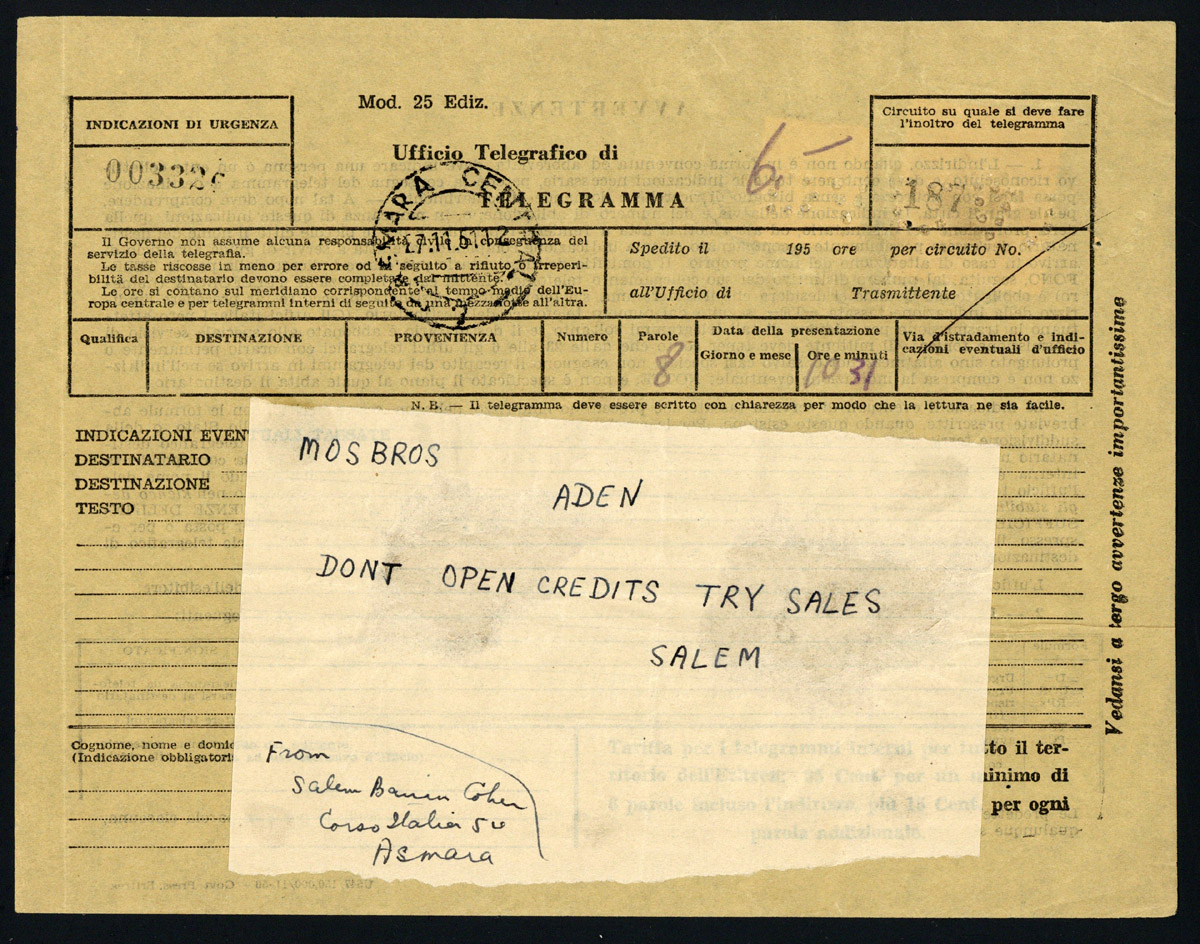 Mod. 25 Ediz.
INDICAZIONI DI URGENZA
00332
Ufficio Telegrafico di
TELEGRAMMA
6.-
Circuito su quale si deve fare
l'inoltro del telegramma
187
ASMARA CENTRALE
27.11.51.12
Il Governo non assume alcuna responsabilità civile in conseguenza del
servizio della telegrafia.
Le tasse riscosse in meno per errore od in seguito a rifiuto o irreperi-
bilità del destinatario devono essere completate dal mittente.
Le ore si contano sul meridiano corrispondente al tempo medio dell'Eu-
ropa centrale e per telegrammi interni di seguito da una mezzanotte all'altra.
Spedito il 195 ore per circuito No.
all'Ufficio di Trasmittente
Qualifica DESTINAZIONE PROVENIENZA Numero Parole Data della presentazione Via d'istradamento e indi-
Giorno e mese Ore e minuti cazioni eventuali d'ufficio
8 10 31
N. B. — Il telegramma deve essere scritto con chiarezza per modo che la lettura ne sia facile.
INDICAZIONI EVEN
DESTINATARIO
DESTINAZIONE
TESTO
MOSBROS
ADEN
DONT OPEN CREDITS TRY SALES
SALEM
Cognome, nome e domic
(Indicazione obbligatori
From
Salem Cohen
Corso Italia
Asmara
tto il ter-
inimo di
per ogni
Vedansi a tergo avvertenze importantissime